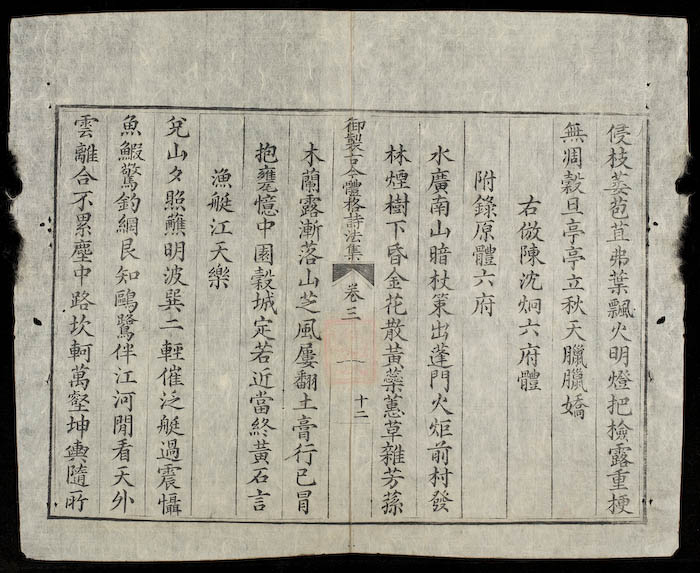 侵枝萎苞苴弗葉飄火明燈把撿露重梗
無凋穀旦亭亭立秋天臘臘嬌
右倣陳沈炯六府體
附錄原體六府
水廣南山暗杖策出蓬門火炬前村發
林煙樹下昏金花散黃蘂蕙草雜芳蓀
御製古今體格詩法集 卷三 十二
木蘭露漸落山芝風屢翻土膏行已冒
抱甕憶中園穀城定若近當終黃石言
漁艇江天樂
兌山々照蘸明波巽二輕催泛艇過震懾
魚鰕驚釣網艮知鷗鷺伴江河閒看天外
雲離合不累塵中路坎軻萬壑坤輿隨所